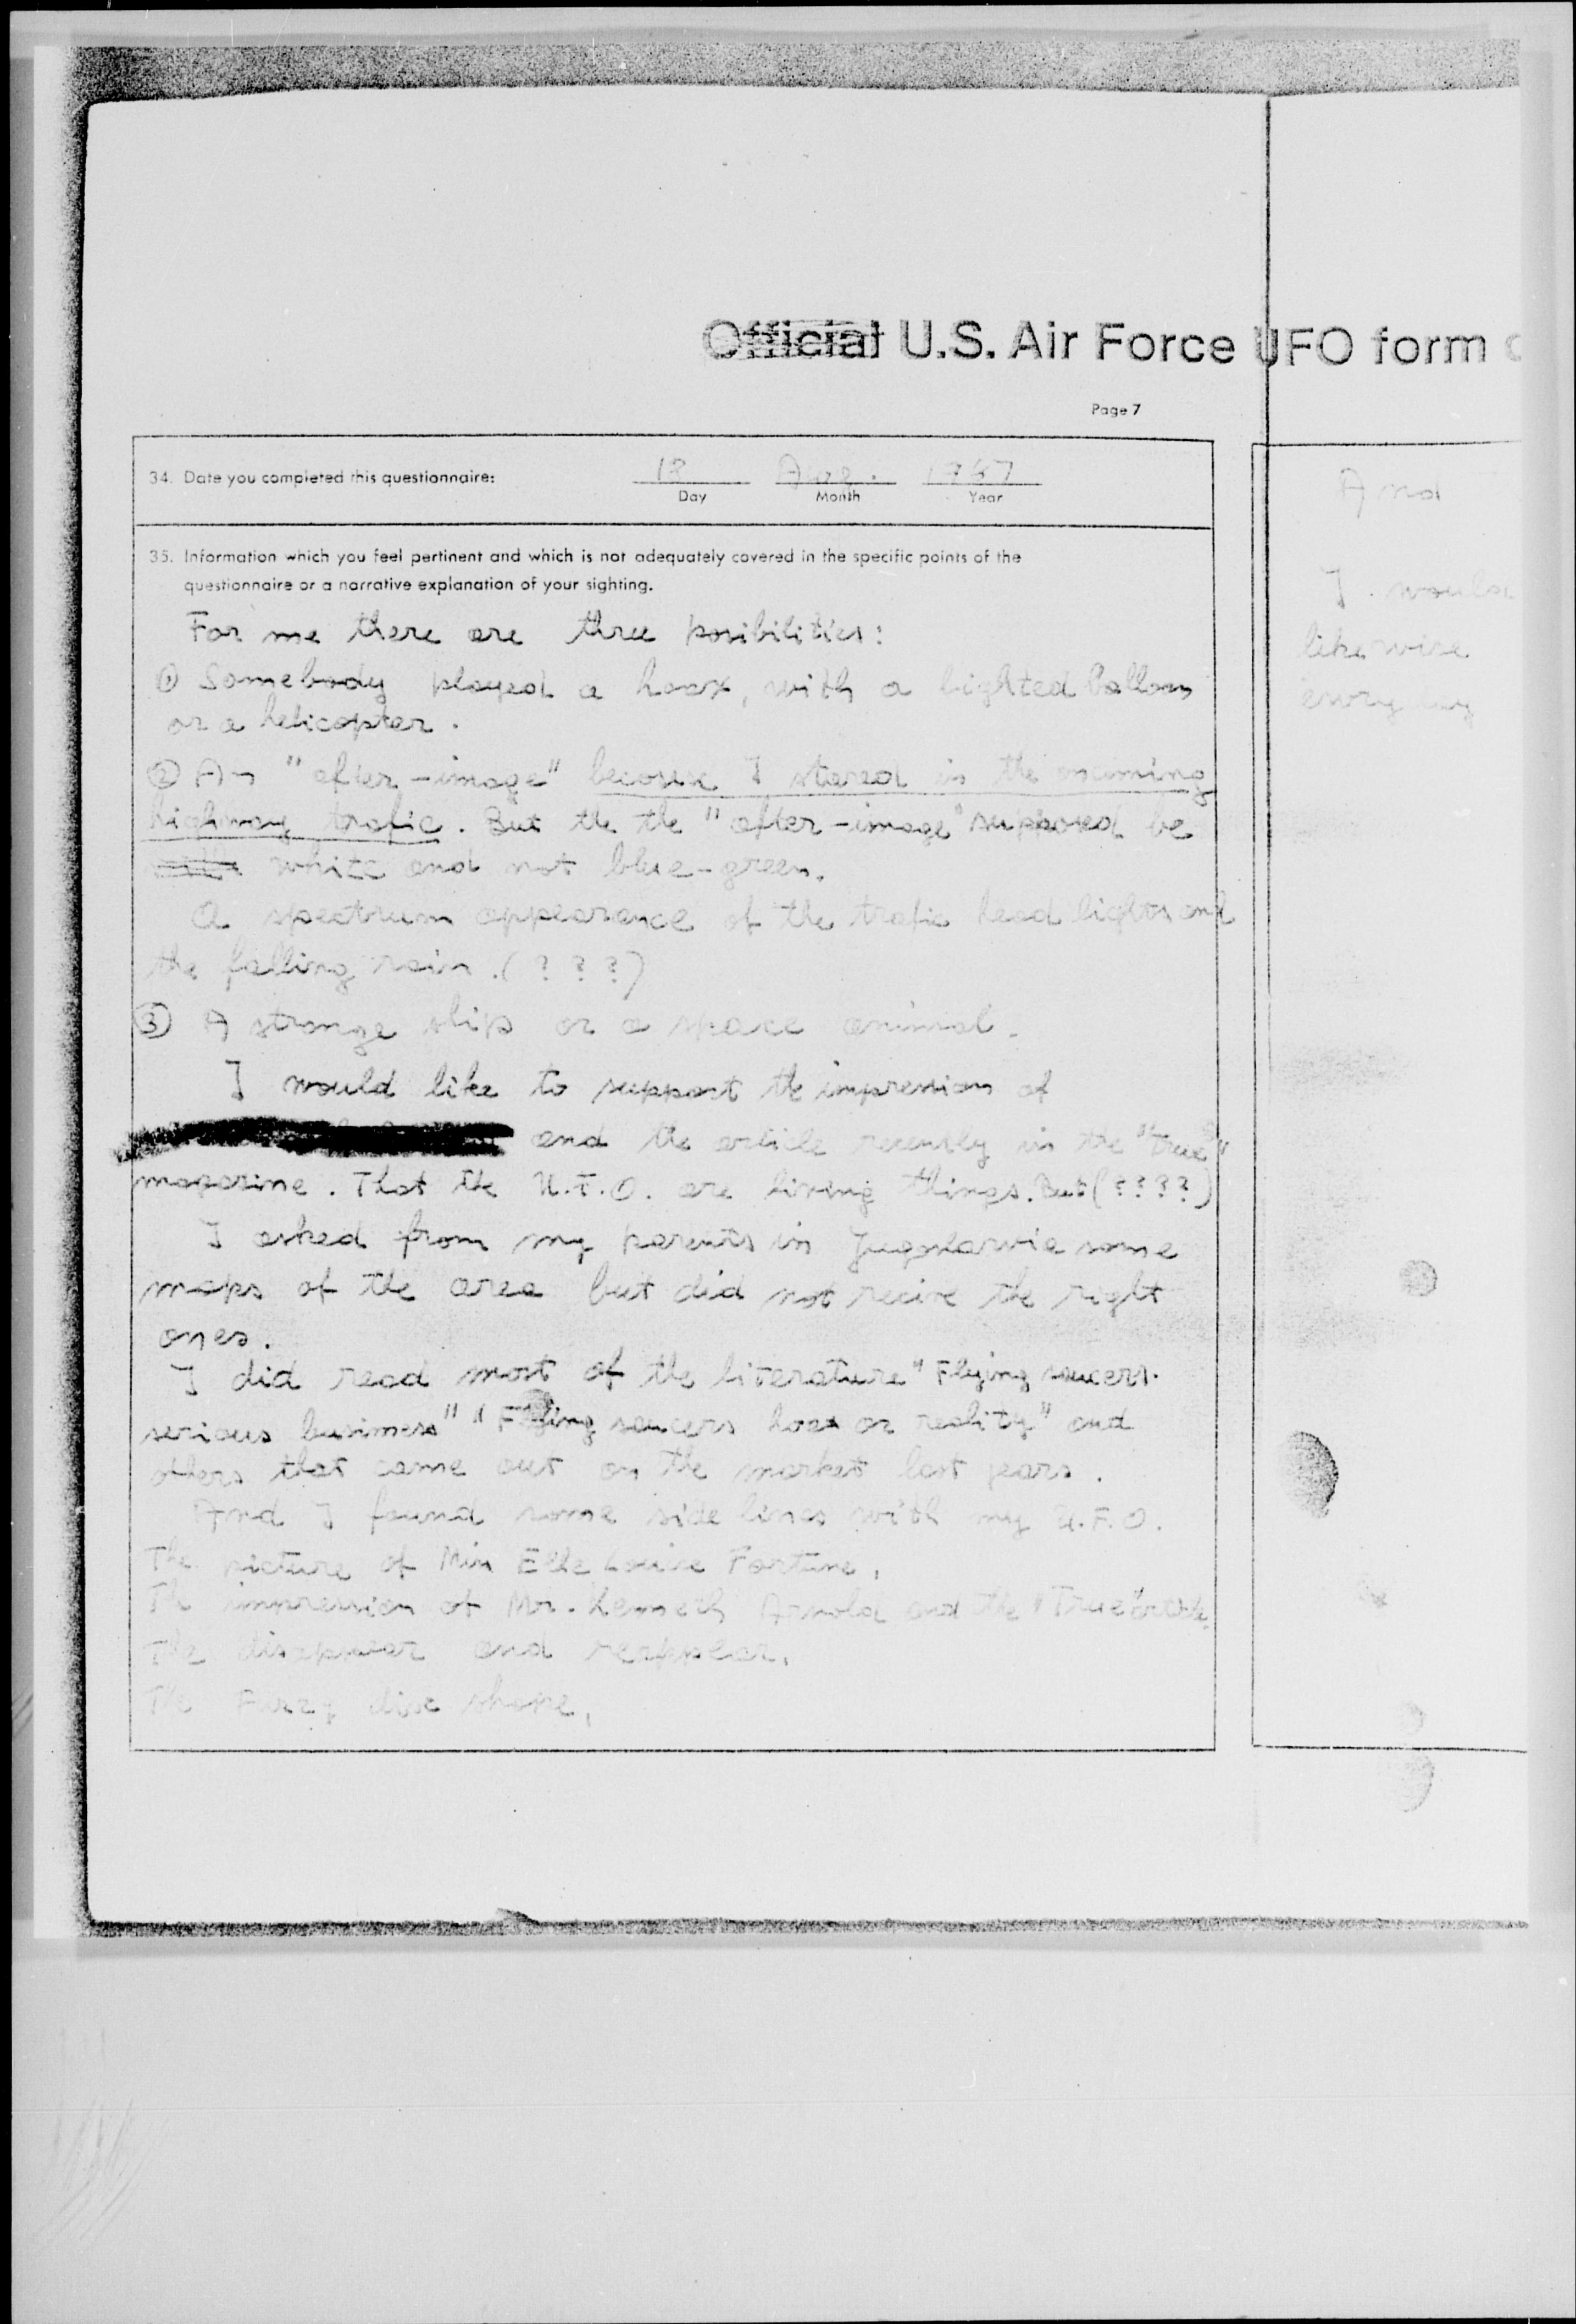 Official U.S. Air Force UFO form
Page 7
34. Date you completed this questionnaire:
Aug. 1967
Day Month Year
35. Information which you feel pertinent and which is not adequately covered in the specific points of the
questionnaire or a narrative explanation of your sighting.
For me there are three posibilities:
① Somebody played a hoax, with a lighted balloon
or a helicopter.
② An "after-image" becouse I stared in the oncoming
highway trafic. But the the "after-image" supposed be
white and not blue-green.
A spectrum appearance of the trafic head lights and
the falling rain. (? ? ?)
③ A strange ship or a space animal.
I would like to support the impression of
and the article recently in the "True"
magazine. That the U.F.O. are living things. But (????)
I asked from my parents in Jugoslavia some
maps of the area but did not recive the right
ones.
I did read most of the literature "Flying saucers.
serious business" "Flying saucers hoax or reality" and
others that came out on the market last years.
And I found some side lines with my U.F.O.
The picture of Miss Elle Louise Fortune,
The impression of Mr. Kenneth Arnold and the "True" article.
The disappear and reappear,
The fuzzy disc shape,
And
I would
likewise